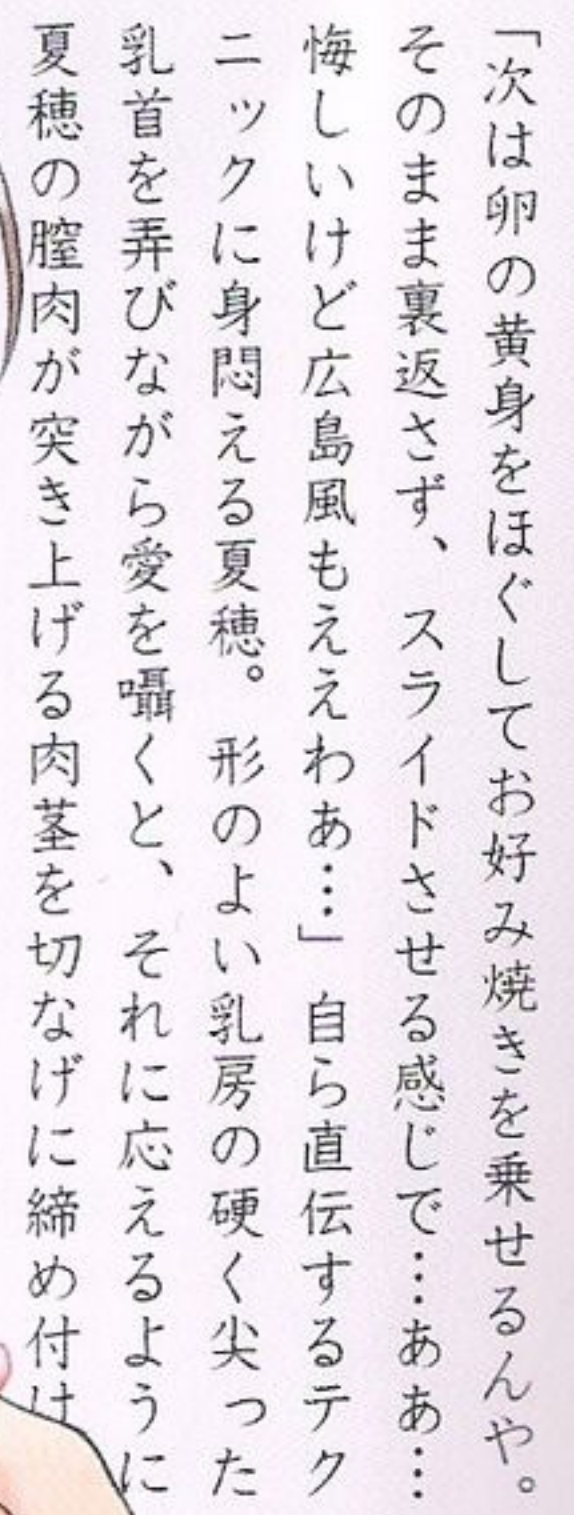 「次は卵の黄身をほぐしてお好み焼きを乗せるんや。
そのまま裏返さず、スライドさせる感じで…ああ…
悔しいけど広島風もええわあ…」自ら直伝するテク
ニックに身悶える夏穂。形のよい乳房の硬く尖った
乳首を弄びながら愛を囁くと、それに応えるように
夏穂の膣肉が突き上げる肉茎を切なげに締め付け